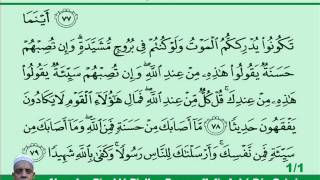 ٧٧ أَيْنَمَا
تَكُونُوا۟ يُدْرِككُّمُ ٱلْمَوْتُ وَلَوْ كُنتُمْ فِى بُرُوجٍ مُّشَيَّدَةٍ وَإِن تُصِبْهُمْ
حَسَنَةٌ يَقُولُوا۟ هَٰذِهِۦ مِنْ عِندِ ٱللَّهِ وَإِن تُصِبْهُمْ سَيِّئَةٌ يَقُولُوا۟
هَٰذِهِۦ مِنْ عِندِكَ قُلْ كُلٌّ مِّنْ عِندِ ٱللَّهِ فَمَالِ هَٰٓؤُلَآءِ ٱلْقَوْمِ لَا يَكَادُونَ
يَفْقَهُونَ حَدِيثًا ٧٨ مَّآ أَصَابَكَ مِنْ حَسَنَةٍ فَمِنَ ٱللَّهِ وَمَآ أَصَابَكَ مِن
سَيِّئَةٍ فَمِن نَّفْسِكَ وَأَرْسَلْنَٰكَ لِلنَّاسِ رَسُولًا وَكَفَىٰ بِٱللَّهِ شَهِيدًا ٧٩
1/1